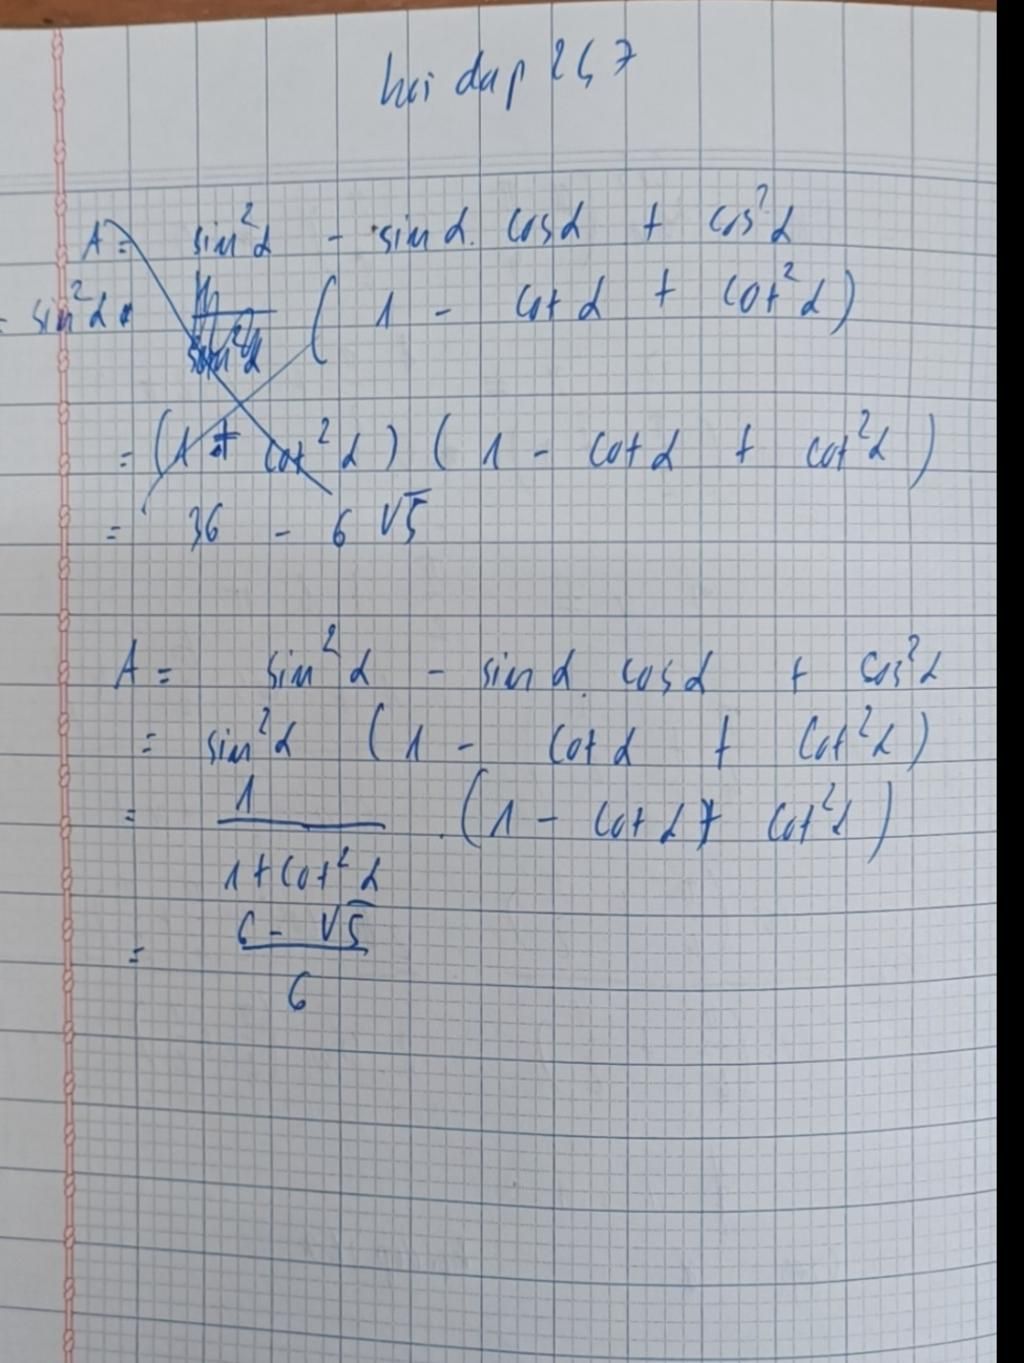 hoi dap 247
A = sin²α - sin α. cos α + cos²α
= sin²α. ( 1 - cot α + cot²α)
= (1 + cot²α) ( 1 - cot α + cot²α )
= 36 - 6 √5
A = sin²α - sin α. cos α + cos²α
= sin²α ( 1 - cot α + cot²α)
= 1 / 1 + cot²α . (1 - cot α + cot²α)
= 6 - √5 / 6